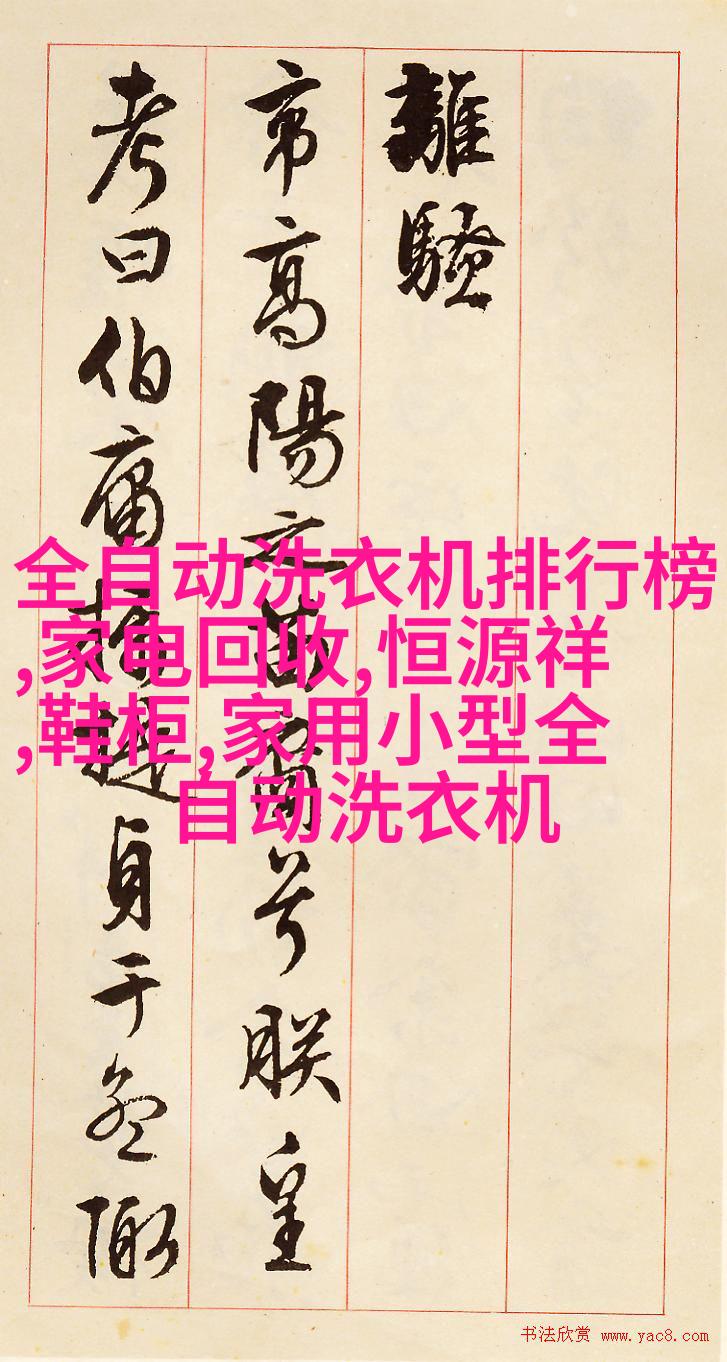 離騷
帝高陽之苗裔兮朕皇
考曰伯庸攝提貞于孟陬
全自动洗衣机排行榜
,家电回收,恒源祥
,鞋柜,家用小型全
自动洗衣机
书法欣赏 www.yac8.com